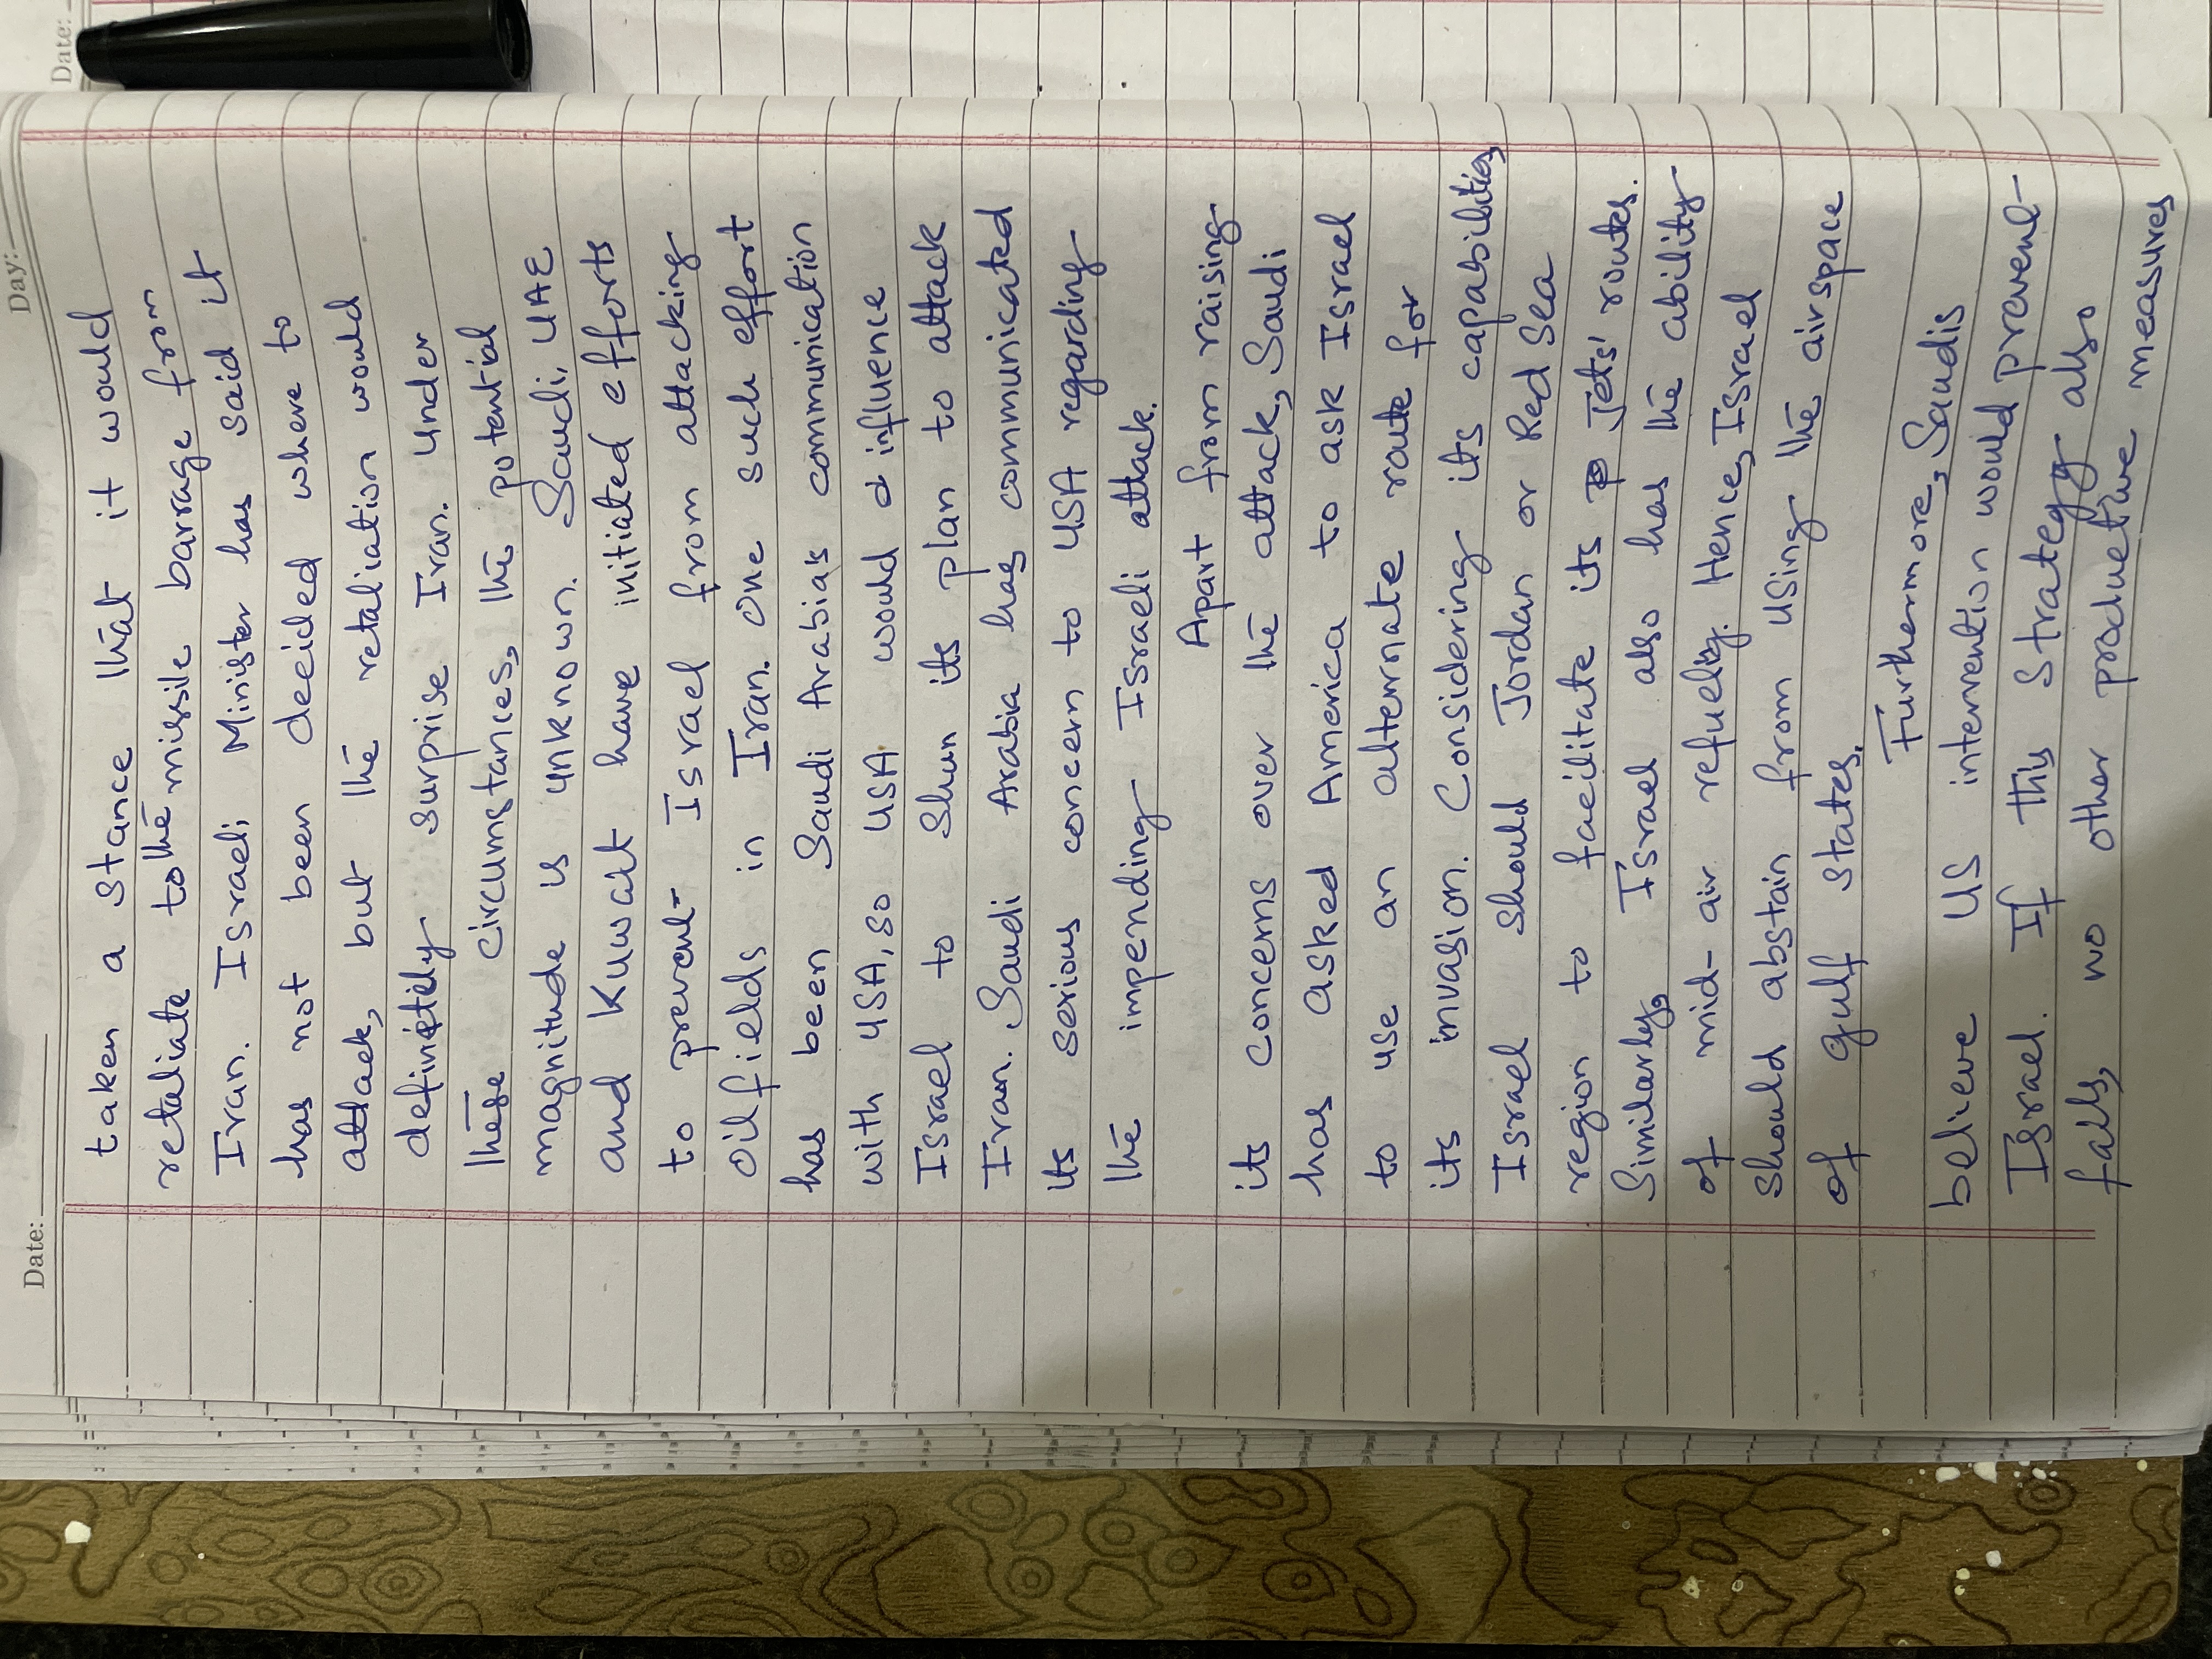 Date:
Date: Day:
taken a stance that it would
retaliate to the missile barrage from
Iran. Israeli Minister has said it
has not been decided where to
attack, but the retaliation would
definitely surprise Iran. Under
these circumstances, the potential
magnitude is unknown. Saudi, UAE
and Kuwait have initiated efforts
to prevent Israel from attacking
oil fields in Iran. One such effort
has been Saudi Arabia's communication
with USA, so USA would influence
Israel to shun its plan to attack
Iran. Saudi Arabia has communicated
its serious concern to USA regarding
the impending Israeli attack.
Apart from raising
its concerns over the attack, Saudi
has asked America to ask Israel
to use an alternate route for
its invasion. Considering its capabilities,
Israel should Jordan or Red Sea
region to facilitate its Jets' routes.
Similarly, Israel also has the ability
of mid-air refuelig. Hence, Israel
should abstain from using the airspace
of gulf states.
Furthermore, Saudis
believe US intervention would prevent
Israel. If this strategy also
fails, no other productive measures